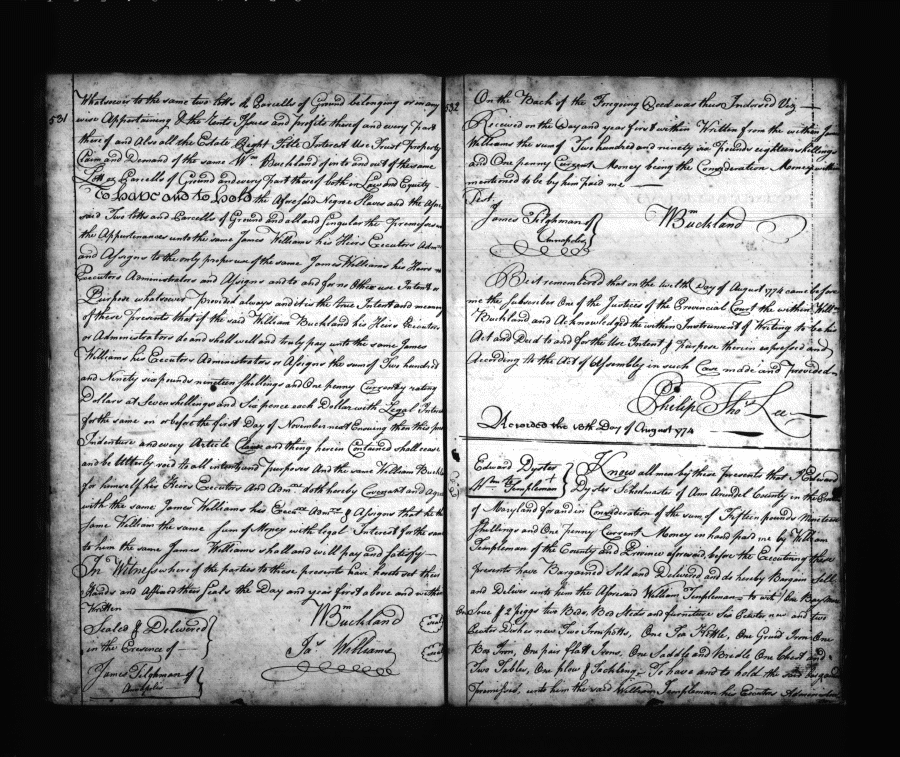 531
Whatsoever to the same two lotts & Parcells of Ground belonging or in any
wise Appertaining & the rents Issues and profits thereof and every part
thereof and Also all the Estate Right Title Interest Use Trust Property
Claim and Demand of the same Wm Buckland of in to and out of the same
Lotts or Parcells of Ground and every part thereof both in Law and Equity
To Have and to hold the aforesaid Negroe Slaves and the afore
said Two lotts and Parcells of Ground and all and Singular the Premises
the Appurtenances unto the same James Williams his Heirs Executors Admrs
and Assigns to the only proper use of the same James Williams his Heirs
Executors Administrators and Assigns and to and for no other use Intent or
Purpose whatsoever Provided always and it is the true Intent and meaning
of these Presents that if the said William Buckland his Heirs Executors
or Administrators do and shall well and truly pay unto the same James
Williams his Executors Administrators or Assigns the sum of Two hundred
and Ninety six pounds nineteen Shillings and One penny Currently rating
Dollars at Seven shillings and Six pence each Dollar with Legal Interest
for the same on or before the first Day of November next Ensuing then this
Indenture and every Article Clause and thing herein Contained shall cease
and be Utterly void to all intents and purposes And the same William
for himself his Heirs Executors and Adm doth hereby Covenant and
with the same James Williams his Exec Adm & Assigns that he the
same William the same sum of Money with legal Interest for the same
to him the same James Williams shall and will pay and satisfy
In Witness whereof the parties to these presents have hereto set their
Hands and Affixed their Seals the Day and year first above and within
Written
Sealed & Delivered
in the Presence of
James Tilghman of
Annapolis
Wm Buckland
Js Williams
532
On the Back of the Foregoing Deed was thus Indorsed Viz
Received on the Day and year first within Written from the within James
Williams the sum of Two hundred and ninety six Pounds eighteen shillings
and One penny Current Money being the Consideration Money within
mentioned to be by him paid me
Test
James Tilghman of
Annapolis
Wm Buckland
Be it remembered that on the twelfth Day of August 1774 came before
me the Subscriber One of the Justices of the Provincial Court the within Willm
Buckland and Acknowledged the within Instrument of Writing to be his
Act and Deed to and for the Use Intent & Purpose therein expressed and
According to the Act of Assembly in such Case made and provided
Philip Thos Lee
Recorded the 18th Day of August 1774
Edward Dyster
Wm Templeman
Know all men by these Presents that I Edward
Dyster Schoolmaster of Ann Arundel County in the
of Maryland for and in Consideration of the sum of Fifteen pounds Nineteen
Shillings and One Penny Current Money in hand paid me by William
Templeman of the County and Province aforesaid before the Executing these
presents have Bargained Sold and Delivered and do hereby Bargain Sell
and Deliver unto the Aforesaid William Templeman to wit One Bay Mare
One Sow & 2 piggs two Beds Bed Steads and furniture Six new and two
Dishes new Two Ironpotts, One Tea Kettle, One Grid Iron One
Box Iron, One pair flatt Irons, One Saddle and Bridle One Chest and
Two Tables, One plow & Tackling, To have and to hold the said
Premises, unto him the said William Templeman his Executors